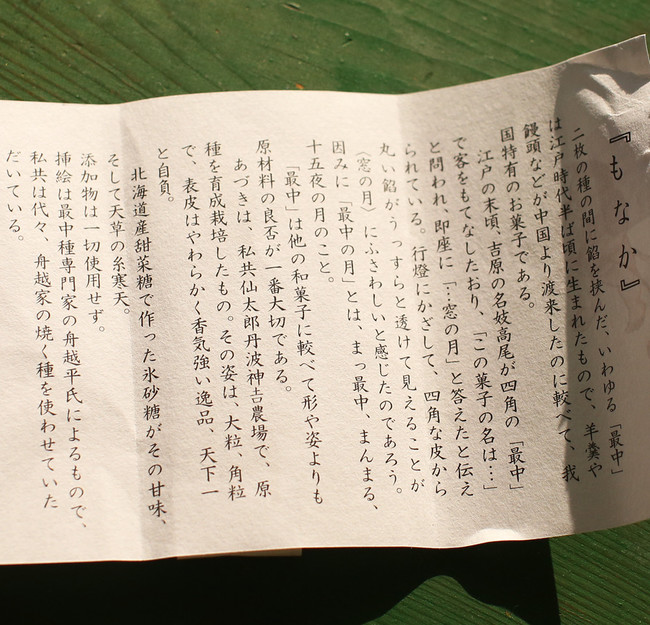 『もなか』
二枚の種の間に餡を挟んだ、いわゆる「最中」
は江戸時代半ば頃に生まれたもので、羊羹や
饅頭などが中国より渡来したのに較べて、我
国特有のお菓子である。
江戸の末頃、吉原の名妓高尾が四角の「最中」
で客をもてなしたおり、「この菓子の名は…」
と問われ、即座に「…窓の月」と答えたと伝え
られている。行燈にかざして、四角な皮から
丸い餡がうっすらと透けて見えることが
〈窓の月〉にふさわしいと感じたのであろう。
因みに「最中の月」とは、まっ最中、まんまる、
十五夜の月のこと。
「最中」は他の和菓子に較べて形や姿よりも
原材料の良否が一番大切である。
あづきは、私共仙太郎丹波神𠮷農場で、原
種を育成栽培したもの。その姿は、大粒、角粒
で、表皮はやわらかく香気強い逸品、天下一
と自負。
北海道産甜菜糖で作った氷砂糖がその甘味、
そして天草の糸寒天。
添加物は一切使用せず。
挿絵は最中種専門家の舟越平氏によるもので、
私共は代々、舟越家の焼く種を使わせていた
だいている。